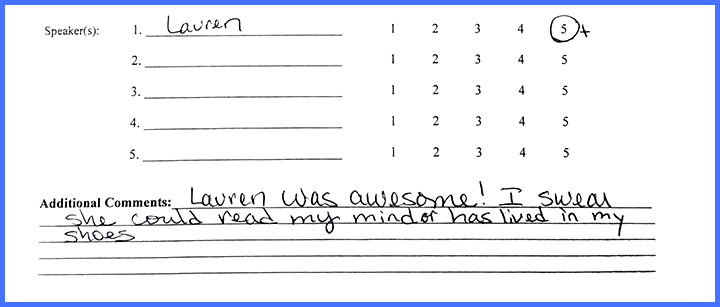 Speaker(s): 1. Lauren 1 2 3 4 5+
2. 1 2 3 4 5
3. 1 2 3 4 5
4. 1 2 3 4 5
5. 1 2 3 4 5
Additional Comments: Lauren was awesome! I swear
she could read my mind or has lived in my
shoes